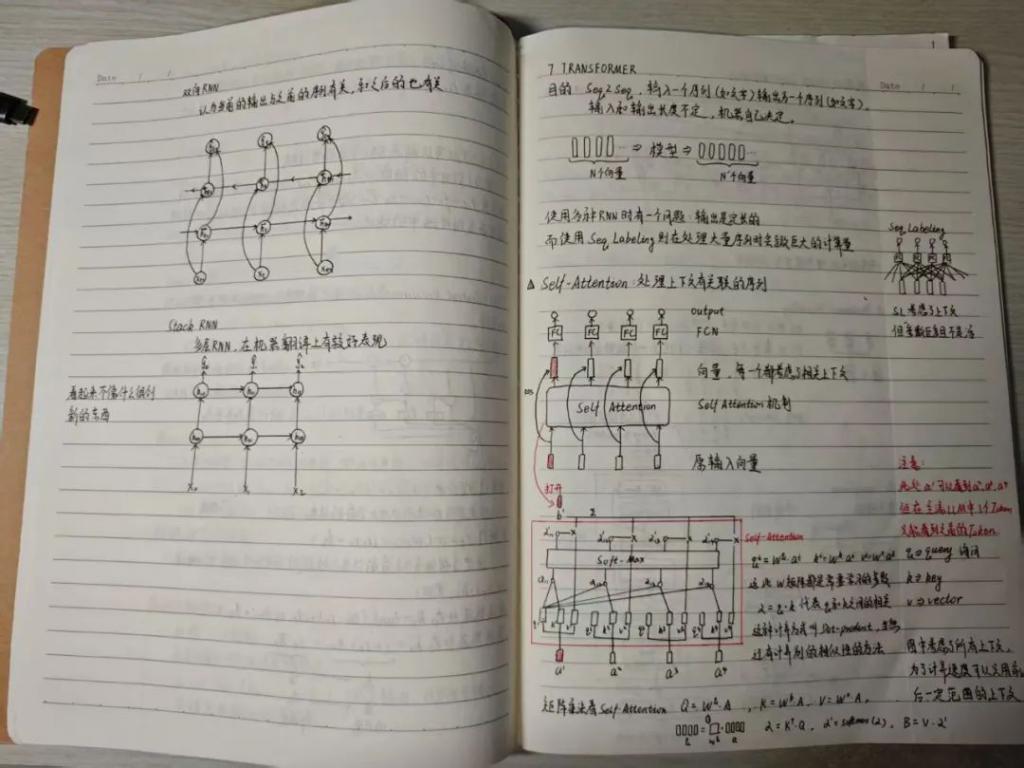 Date / /
双向RNN
认为当前的输出与之前的序列有关，和之后的也有关
Stack RNN
多层RNN，在机器翻译上有较好表现
看起来不像什么
新的东西
x₁
x₂
7 TRANSFORMER
Date / /
目的：Seq2Seq，输入一个序列(如文字)输出另一个序列(如文字)，
输入和输出长度不定，机器自己决定。
⇒ 模型 ⇒
N个向量
N'个向量
使用多种RNN时有一个问题：输出是定长的
而使用Seq Labeling则在处理大量序列时会做巨大的计算量
Seq Labeling
FC FC FC FC
SL考虑了上下文
△ Self-Attention：处理上下文有关联的序列
output
FC FC FC FC
FCN
向量，每一个都考虑了相关上下文
Self Attention
Self Attention 机制
原输入向量
打开
b¹
注意：
此处a¹可以看到a²,a³,a⁴
但在主流LLM中1个Token
只能看到之前的Token.
Self-Attention
Soft-Max
qⁱ=W^q·aⁱ kⁱ=W^k aⁱ vⁱ=W^v aⁱ
q⇒query 询问
这些W矩阵都是需要学习的参数
k⇒key
α=q·k 代表q和k之间的相关
v⇒vector
这种计算方式叫 Dot-product，当然
还有计算别的相似性的方法
图中考虑了所有上下文，
为了计算速度可以只用前
后一定范围的上下文
a¹ a² a³ a⁴
矩阵乘法看Self Attention Q=W^q·A, K=W^k·A, V=W^v·A,
α=Kᵀ·Q, α'=softmax(α), B=V·α'